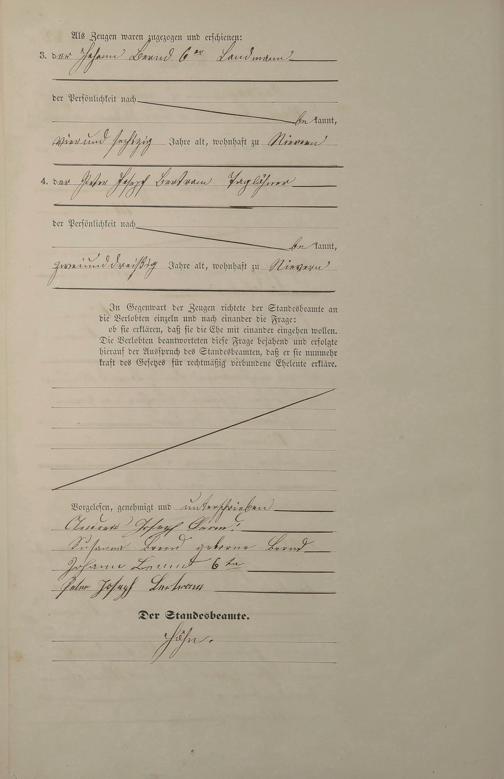 Als Zeugen waren zugezogen und erschienen:
3. der Johann Bernd 6ter Landmann
der Persönlichkeit nach
be kannt,
vier und sechzig Jahre alt, wohnhaft zu Nievern
4. der Peter Joseph Bertram Taglöhner
der Persönlichkeit nach
be kannt,
zwei und dreißig Jahre alt, wohnhaft zu Nievern
In Gegenwart der Zeugen richtete der Standesbeamte an
die Verlobten einzeln und nach einander die Frage:
ob sie erklären, daß sie die Ehe mit einander eingehen wollen.
Die Verlobten beantworteten diese Frage bejahend und erfolgte
hierauf der Ausspruch des Standesbeamten, daß er sie nunmehr
kraft des Gesetzes für rechtmäßig verbundene Eheleute erkläre.
Vorgelesen, genehmigt und unterschrieben
Joseph
Susanna Bernd geborne Bernd
Johann Bernd 6ter
Peter Joseph Bertram
Der Standesbeamte.
Höhn.